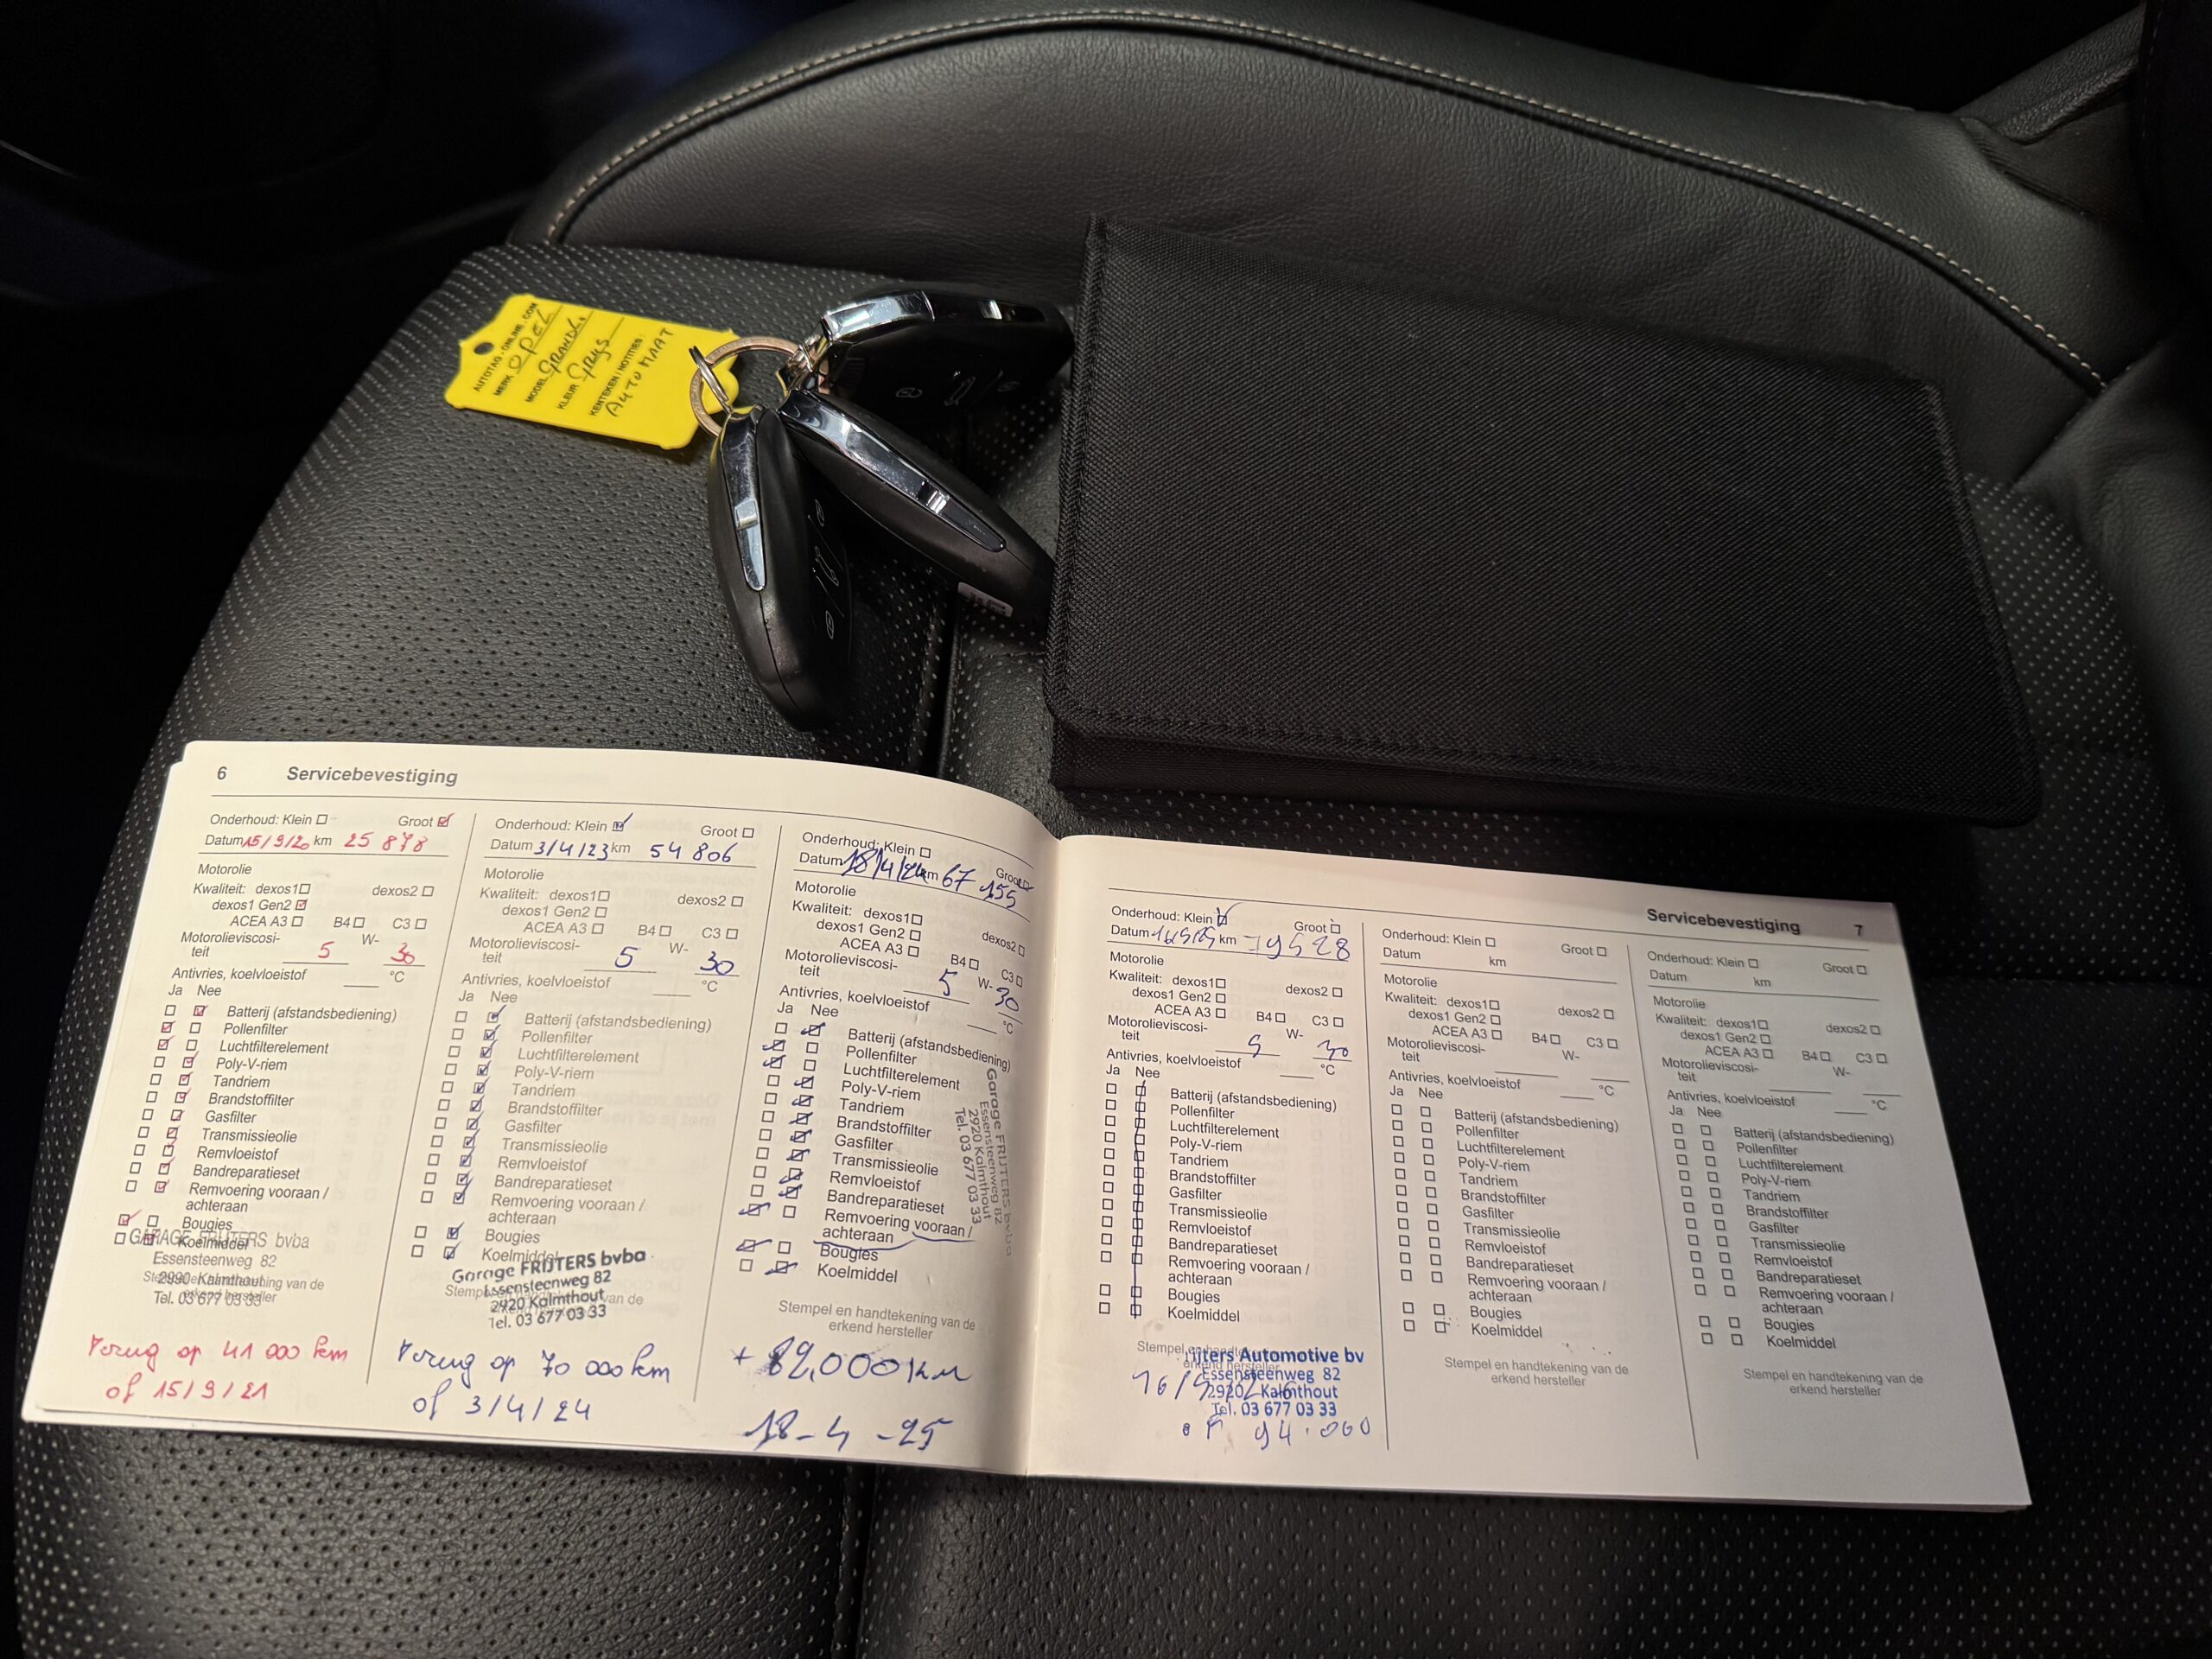 AUTOTAG-ONLINE.COM
MERK OPEL
MODEL GRANDL.
KLEUR GRYS
KENTEKEN / NOTITIES:
AUTOMAAT
6 Servicebevestiging
Onderhoud: Klein Groot
Datum 15/9/20 km 25 878
Motorolie
Kwaliteit: dexos1 dexos2
dexos1 Gen2
ACEA A3 B4 C3
Motorolieviscosi-
teit 5 W- 30
Antivries, koelvloeistof °C
Ja Nee
Batterij (afstandsbediening)
Pollenfilter
Luchtfilterelement
Poly-V-riem
Tandriem
Brandstoffilter
Gasfilter
Transmissieolie
Remvloeistof
Bandreparatieset
Remvoering vooraan /
achteraan
Bougies
Koelmiddel
GARAGE FRIJTERS bvba
Essensteenweg 82
2990 Kalmthout
Tel. 03 677 03 33
Stempel en handtekening van de
erkend hersteller
Terug op 41 000 km
of 15/9/21
Onderhoud: Klein Groot
Datum 3/4/23 km 54 806
Motorolie
Kwaliteit: dexos1 dexos2
dexos1 Gen2
ACEA A3 B4 C3
Motorolieviscosi-
teit 5 W- 30
Antivries, koelvloeistof °C
Ja Nee
Batterij (afstandsbediening)
Pollenfilter
Luchtfilterelement
Poly-V-riem
Tandriem
Brandstoffilter
Gasfilter
Transmissieolie
Remvloeistof
Bandreparatieset
Remvoering vooraan /
achteraan
Bougies
Koelmiddel
Garage FRIJTERS bvba
Essensteenweg 82
2920 Kalmthout
Tel. 03 677 03 33
Terug op 70 000 km
of 3/4/24
Onderhoud: Klein Groot
Datum 18/4/24 km 67 155
Motorolie
Kwaliteit: dexos1 dexos2
dexos1 Gen2
ACEA A3 B4 C3
Motorolieviscosi-
teit 5 W- 30
Antivries, koelvloeistof °C
Ja Nee
Batterij (afstandsbediening)
Pollenfilter
Luchtfilterelement
Poly-V-riem
Tandriem
Brandstoffilter
Gasfilter
Transmissieolie
Remvloeistof
Bandreparatieset
Remvoering vooraan /
achteraan
Bougies
Koelmiddel
Garage FRIJTERS bvba
Essensteenweg 82
2920 Kalmthout
Tel. 03 677 03 33
Stempel en handtekening van de
erkend hersteller
+ 82,000 km
18-4-25
Servicebevestiging 7
Onderhoud: Klein Groot
Datum km 79528
Motorolie
Kwaliteit: dexos1 dexos2
dexos1 Gen2
ACEA A3 B4 C3
Motorolieviscosi-
teit 5 W- 30
Antivries, koelvloeistof °C
Ja Nee
Batterij (afstandsbediening)
Pollenfilter
Luchtfilterelement
Poly-V-riem
Tandriem
Brandstoffilter
Gasfilter
Transmissieolie
Remvloeistof
Bandreparatieset
Remvoering vooraan /
achteraan
Bougies
Koelmiddel
rijters Automotive bv
Essensteenweg 82
2920 Kalmthout
Tel. 03 677 03 33
94.000
Onderhoud: Klein Groot
Datum km
Motorolie
Kwaliteit: dexos1 dexos2
dexos1 Gen2
ACEA A3 B4 C3
Motorolieviscosi-
teit W-
Antivries, koelvloeistof °C
Ja Nee
Batterij (afstandsbediening)
Pollenfilter
Luchtfilterelement
Poly-V-riem
Tandriem
Brandstoffilter
Gasfilter
Transmissieolie
Remvloeistof
Bandreparatieset
Remvoering vooraan /
achteraan
Bougies
Koelmiddel
Stempel en handtekening van de
erkend hersteller
Onderhoud: Klein Groot
Datum km
Motorolie
Kwaliteit: dexos1 dexos2
dexos1 Gen2
ACEA A3 B4 C3
Motorolieviscosi-
teit W-
Antivries, koelvloeistof °C
Ja Nee
Batterij (afstandsbediening)
Pollenfilter
Luchtfilterelement
Poly-V-riem
Tandriem
Brandstoffilter
Gasfilter
Transmissieolie
Remvloeistof
Bandreparatieset
Remvoering vooraan /
achteraan
Bougies
Koelmiddel
Stempel en handtekening van de
erkend hersteller